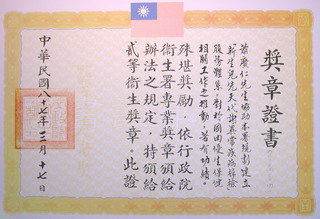 獎章證書
蕭廣仁先生協助本署規劃建立
新生兒先天代謝異常疾病篩檢
服務體系，對於國內優生保健
相關工作之推動，著有功績。
殊堪獎勵，依行政院
衛生署專業獎章頒給
辦法之規定，特頒給
貳等衛生獎章。此證
中華民國八十七年三月十七日